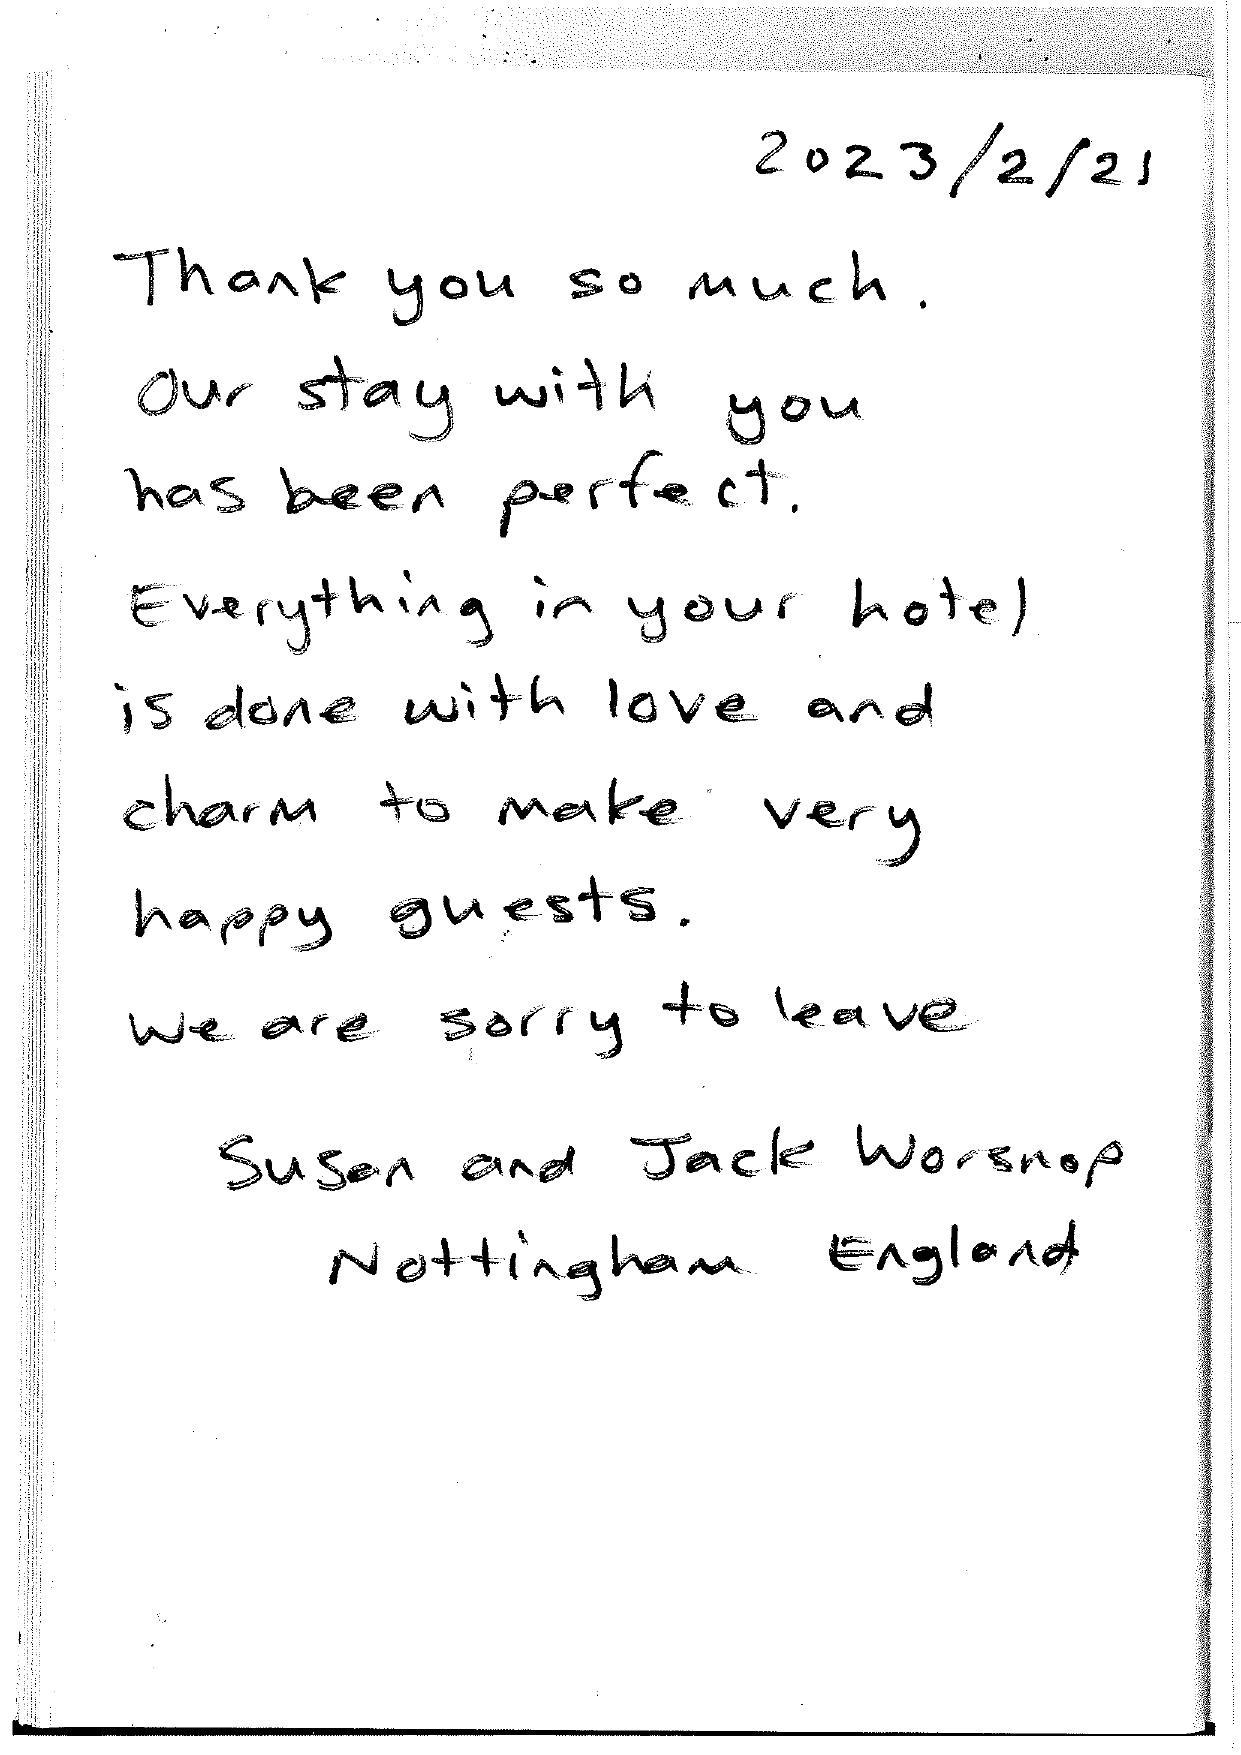 2023/2/21
Thank you so much.
Our stay with you
has been perfect.
Everything in your hotel
is done with love and
charm to make very
happy guests.
We are sorry to leave
Susan and Jack Worsnop
Nottingham England